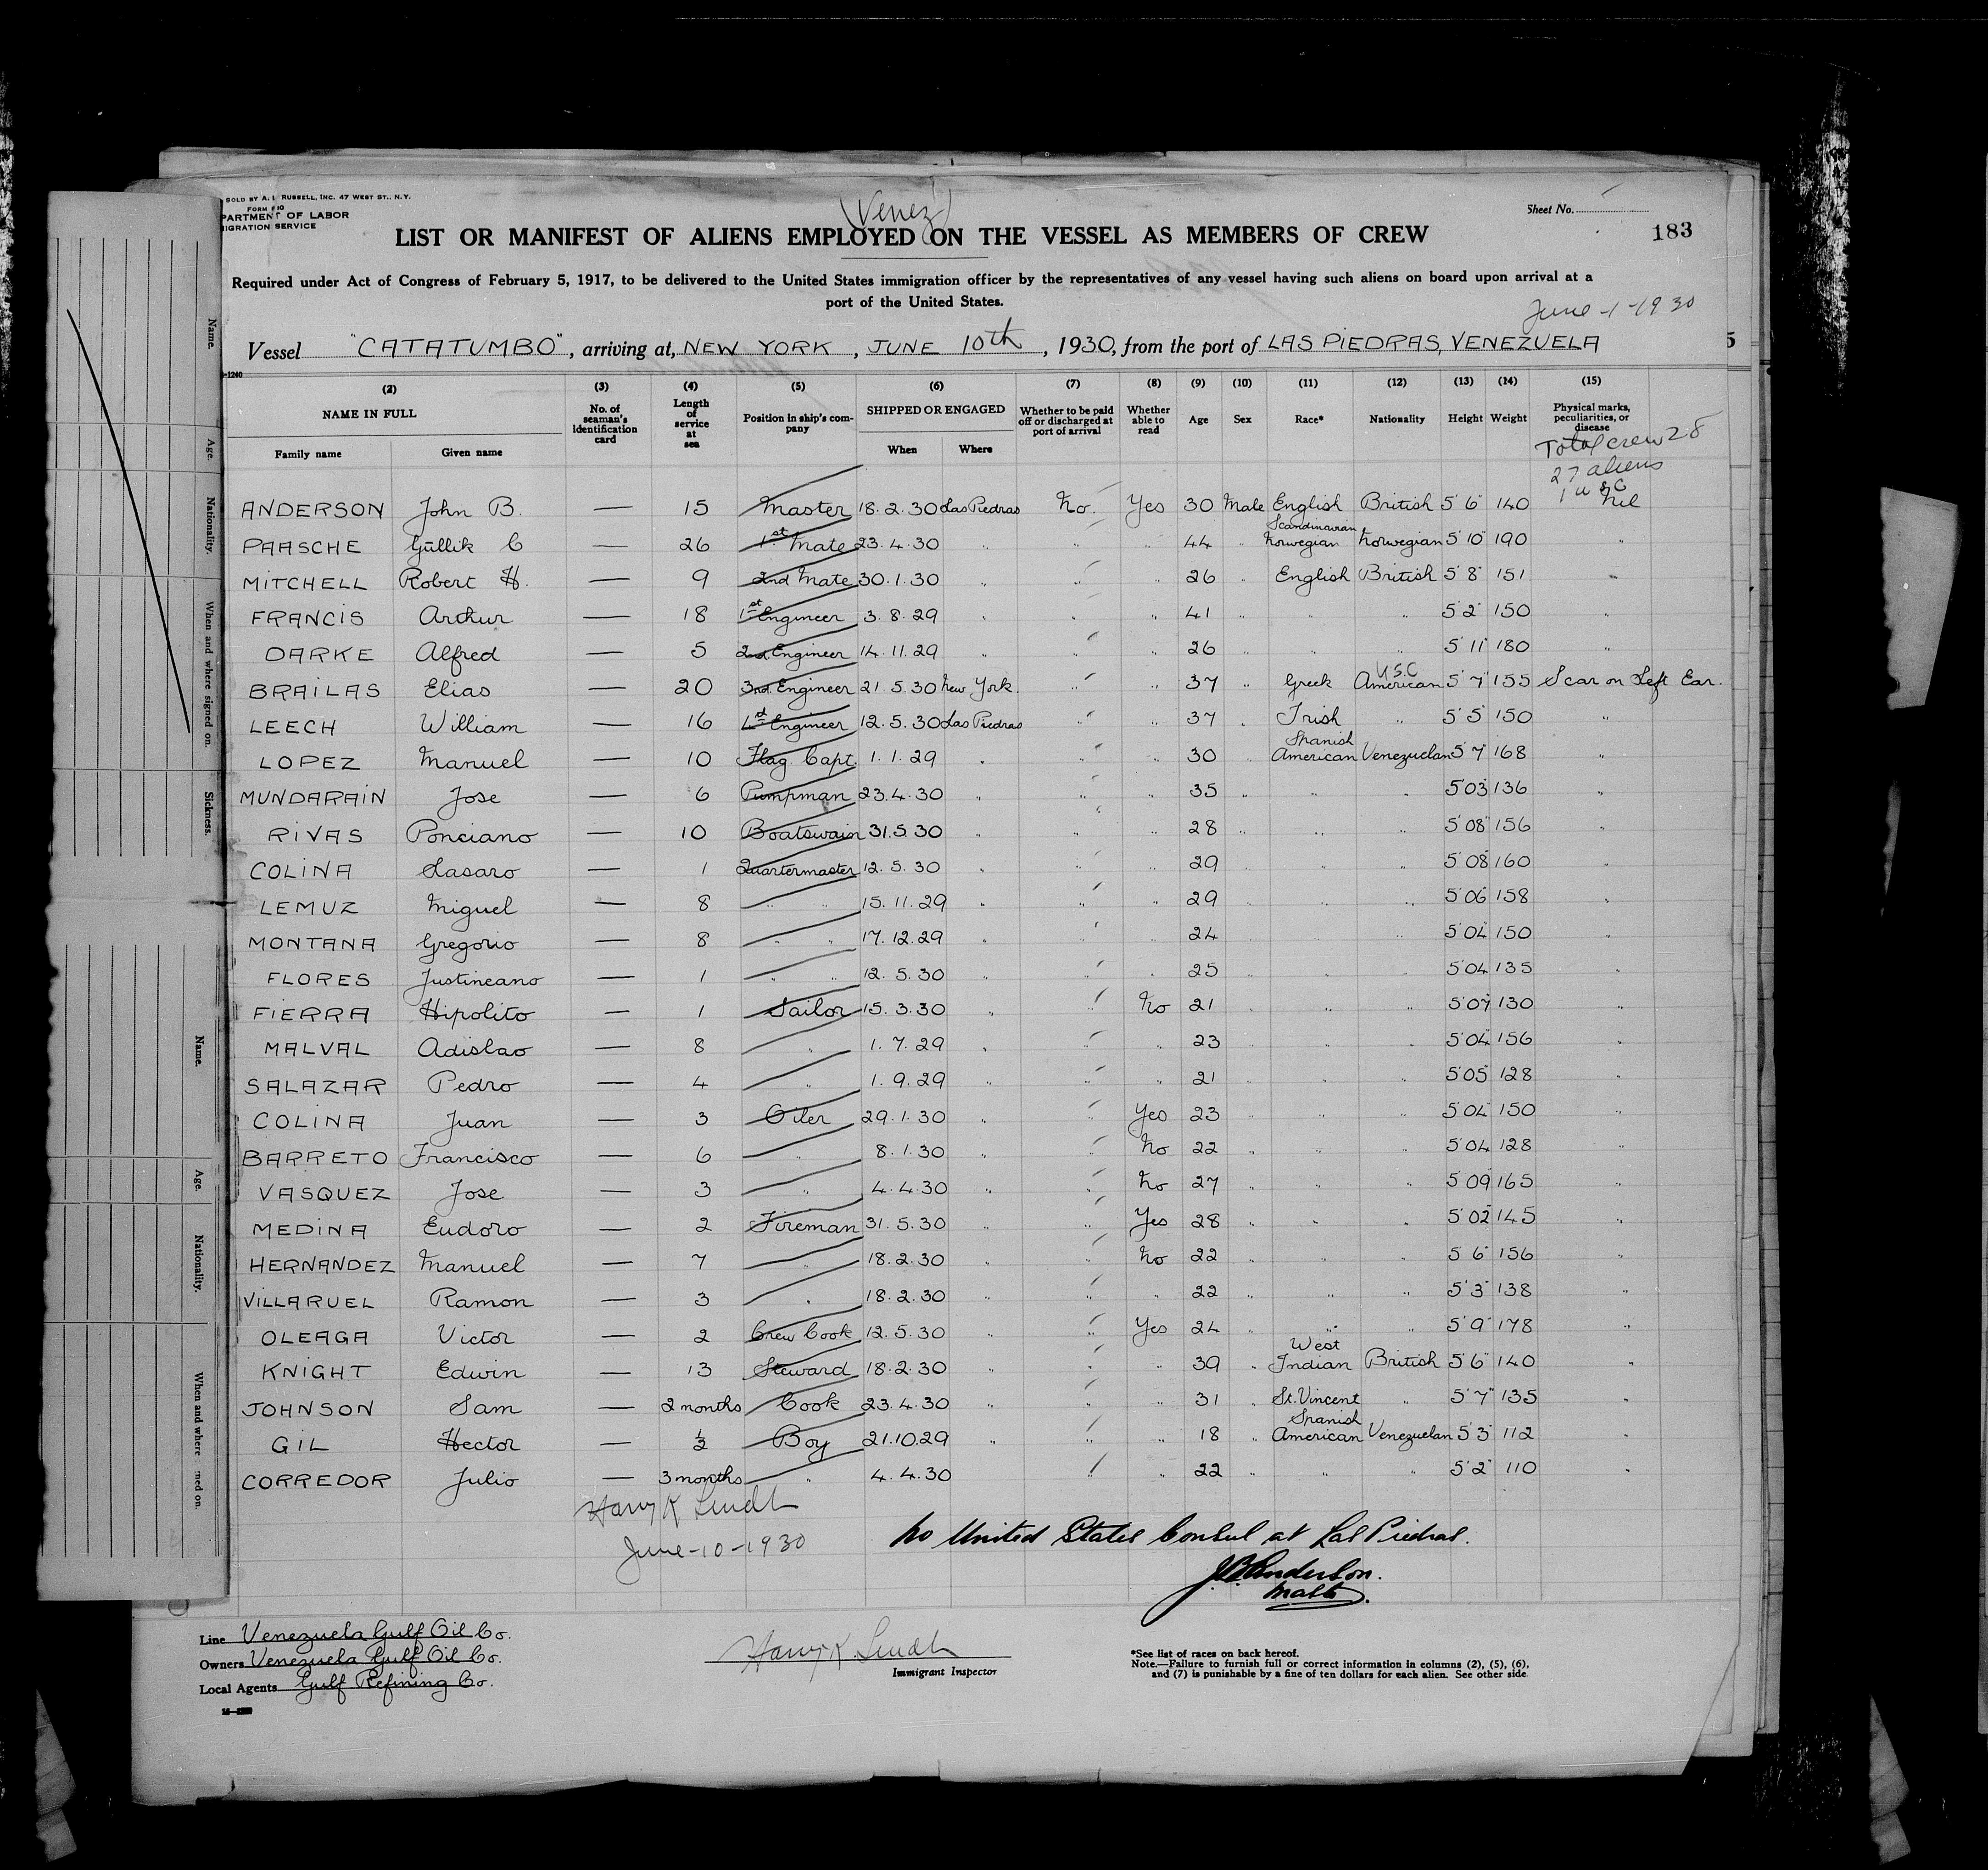 SOLD BY A. L RUSSELL, INC. 47 WEST ST., N.Y.
FORM 
PARTMENT OF LABOR
IGRATION SERVICE
(Venez)
Sheet No.
183
LIST OR MANIFEST OF ALIENS EMPLOYED ON THE VESSEL AS MEMBERS OF CREW
Required under Act of Congress of February 5, 1917, to be delivered to the United States immigration officer by the representatives of any vessel having such aliens on board upon arrival at a
port of the United States.
June-1-1930
Vessel "CATATUMBO", arriving at, NEW YORK, JUNE 10th, 1930, from the port of LAS PIEDRAS, VENEZUELA
5
-1240
(2) (3) (4) (5) (6) (7) (8) (9) (10) (11) (12) (13) (14) (15)
NAME IN FULL No. of seaman's identification card Length of service at sea Position in ship's company SHIPPED OR ENGAGED Whether to be paid off or discharged at port of arrival Whether able to read Age Sex Race* Nationality Height Weight Physical marks, peculiarities, or disease
Family name Given name When Where
Total crew 28
27 aliens
1 USC
ANDERSON John B. — 15 Master 18.2.30 Las Piedras No. Yes 30 Male English British 5'6" 140 Nil
PAASCHE Gullik C — 26 1st Mate 23.4.30 " " " 44 " Scandinavian Norwegian Norwegian 5'10" 190 "
MITCHELL Robert H. — 9 2nd Mate 30.1.30 " " " 26 " English British 5'8" 151 "
FRANCIS Arthur — 18 1st Engineer 3.8.29 " " " 41 " " " 5'2" 150 "
DARKE Alfred — 5 2nd Engineer 14.11.29 " " " 26 " " " 5'11" 180 "
BRAILAS Elias — 20 3rd Engineer 21.5.30 New York " " 37 " Greek USC American 5'7" 155 Scar on Left Ear.
LEECH William — 16 Engineer 12.5.30 Las Piedras " " 37 " Irish " 5'5" 150 "
LOPEZ Manuel — 10 Flag Capt. 1.1.29 " " " 30 " Spanish American Venezuelan 5'7" 168 "
MUNDARAIN Jose — 6 Pumpman 23.4.30 " " " 35 " " " 5'03" 136 "
RIVAS Ponciano — 10 Boatswain 31.5.30 " " " 28 " " " 5'08" 156 "
COLINA Lasaro — 1 Quartermaster 12.5.30 " " " 29 " " " 5'08" 160 "
LEMUZ Miguel — 8 " " 15.11.29 " " " 29 " " " 5'06" 158 "
MONTANA Gregorio — 8 " " 17.12.29 " " " 24 " " " 5'04" 150 "
FLORES Justineano — 1 " " 12.5.30 " " " 25 " " " 5'04" 135 "
FIERRA Hipolito — 1 Sailor 15.3.30 " " No 21 " " " 5'07" 130 "
MALVAL Adislao — 8 " 1.7.29 " " " 23 " " " 5'04" 156 "
SALAZAR Pedro — 4 " 1.9.29 " " " 21 " " " 5'05" 128 "
COLINA Juan — 3 Oiler 29.1.30 " " Yes 23 " " " 5'04" 150 "
BARRETO Francisco — 6 " 8.1.30 " " No 22 " " " 5'04" 128 "
VASQUEZ Jose — 3 " 4.4.30 " " No 27 " " " 5'09" 165 "
MEDINA Eudoro — 2 Fireman 31.5.30 " " Yes 28 " " " 5'02" 145 "
HERNANDEZ Manuel — 7 " 18.2.30 " " No 22 " " " 5'6" 156 "
VILLARUEL Ramon — 3 " 18.2.30 " " " 22 " " " 5'3" 138 "
OLEAGA Victor — 2 Crew Cook 12.5.30 " " Yes 24 " " " 5'9" 178 "
KNIGHT Edwin — 13 Steward 18.2.30 " " " 39 " West Indian British 5'6" 140 "
JOHNSON Sam — 2 months Cook 23.4.30 " " " 31 " St. Vincent " 5'7" 135 "
GIL Hector — ½ Boy 21.10.29 " " " 18 " Spanish American Venezuelan 5'3" 112 "
CORREDOR Julio — 3 months " 4.4.30 " " 22 " " " 5'2" 110 "
Harry K Lindt
June-10-1930
No United States Consul at Las Piedras.
J.B. Anderson.
Line Venezuela Gulf Oil Co.
Owners Venezuela Gulf Oil Co.
Local Agents Gulf Refining Co.
Harry K. Lindt
Immigrant Inspector
*See list of races on back hereof.
Note.—Failure to furnish full or correct information in columns (2), (5), (6),
and (7) is punishable by a fine of ten dollars for each alien. See other side
Name.
Age.
Nationality.
When and where signed on.
Sickness.
Name.
Age.
Nationality.
When and where ned on.